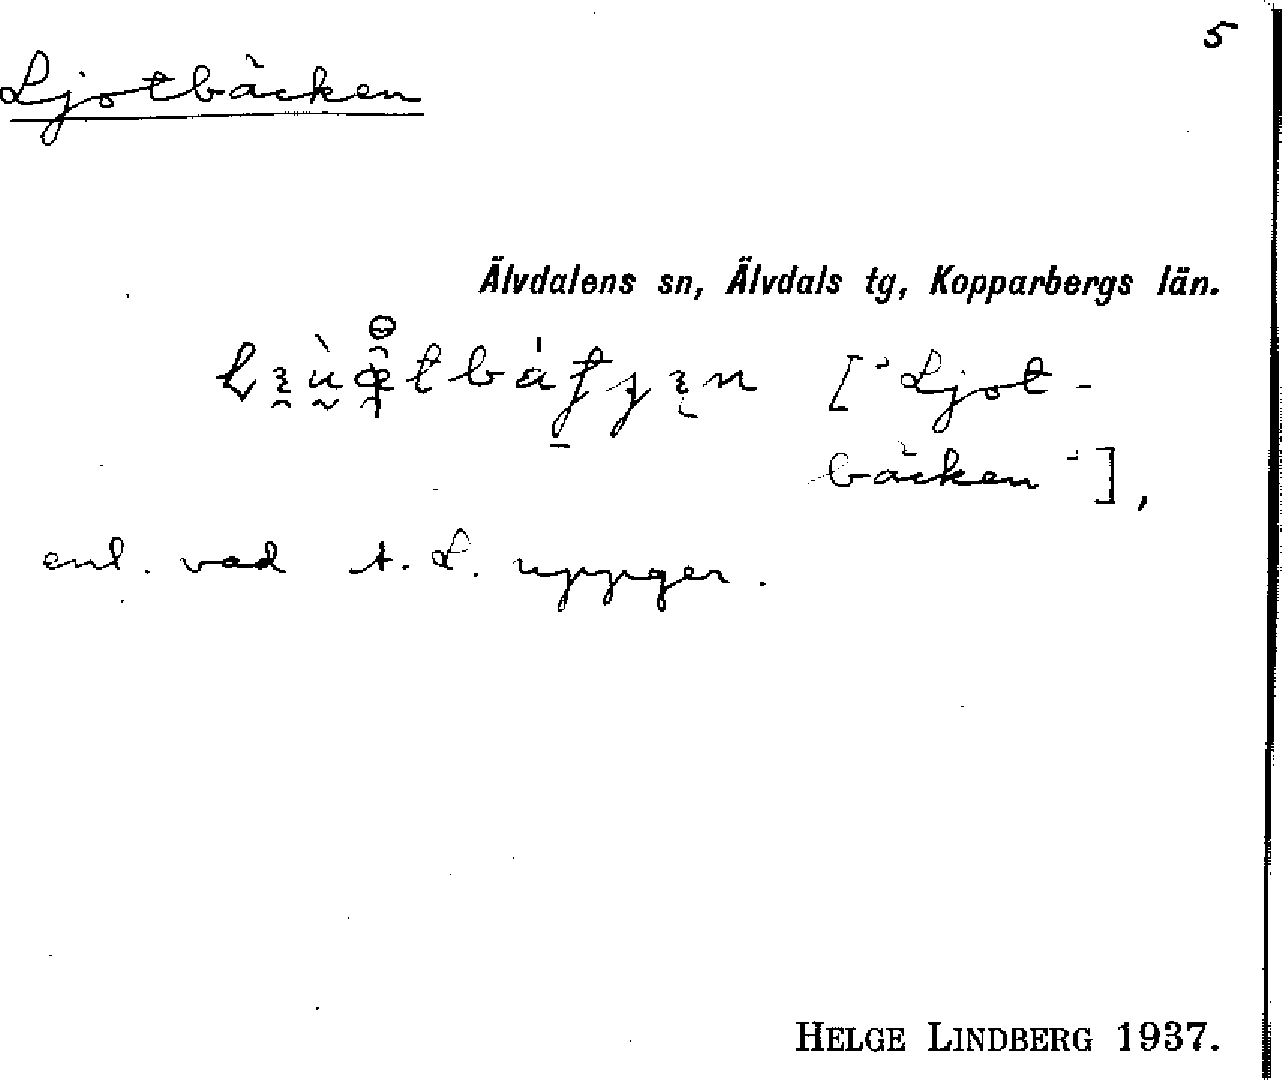 5
Ljotbäcken
Älvdalens sn, Älvdals tg, Kopparbergs län.
["Ljot-
bäcken"],
enl. vad t. L. uppger.
HELGE LINDBERG 1937.